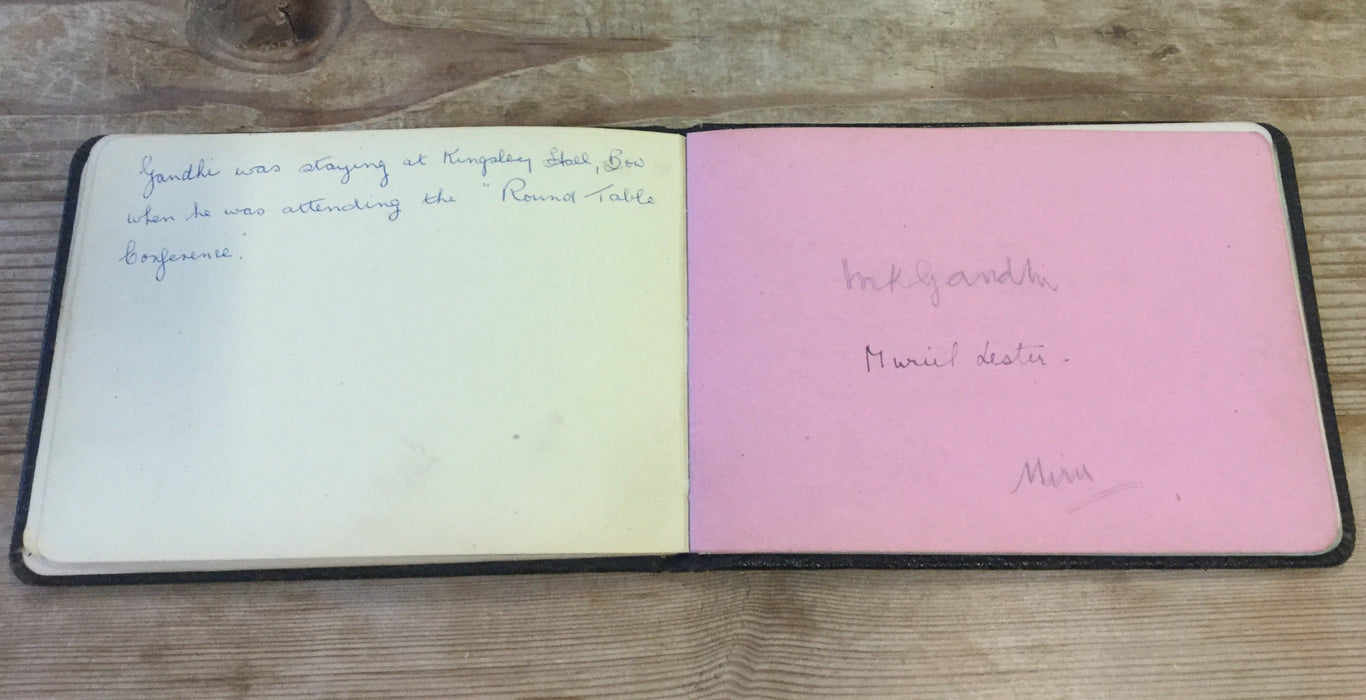 Gandhi was staying at Kingsley Hall, Bow
when he was attending the "Round Table
Conference."
MKGandhi
Muriel Lester.